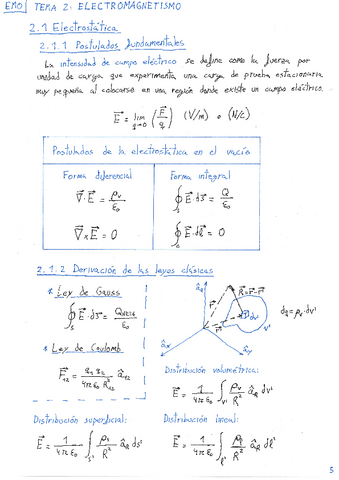 EMO TEMA 2: ELECTROMAGNETISMO
2.1 Electrostática
2.1.1 Postulados fundamentales
La intensidad de campo eléctrico se define como la fuerza por
unidad de carga que experimenta una carga de prueba estacionaria
muy pequeña al colocarse en una región donde existe un campo eléctrico.
E⃗ = lim q→0 (F⃗/q) (V/m) o (N/C)
Postulados de la electrostática en el vacío
Forma diferencial Forma integral
∇⃗·E⃗ = ρv/ε₀ ∮s E⃗·ds⃗ = Q/ε₀
∇⃗×E⃗ = 0 ∮c E⃗·dl⃗ = 0
2.1.2 Derivación de las leyes clásicas
* Ley de Gauss
∮s E⃗·ds⃗ = Qneta/ε₀
* Ley de Coulomb
F⃗₁₂ = q₁q₂/4πε₀R₁₂² â₁₂
R⃗=r⃗-r⃗'
dq = ρv·dv'
Distribución volumétrica:
E⃗ = 1/4πε₀ ∫v' ρv/R² âR dv'
Distribución superficial: Distribución lineal:
E⃗ = 1/4πε₀ ∫s' ρs/R² âR ds' E⃗ = 1/4πε₀ ∫l' ρl/R² âR dl'
5